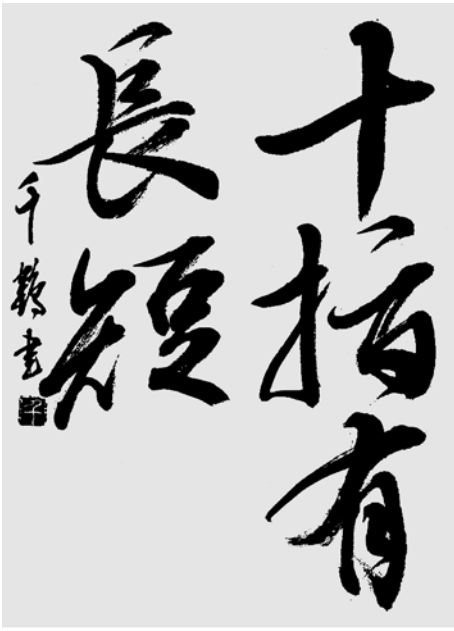 十指有
長短
千鶴書